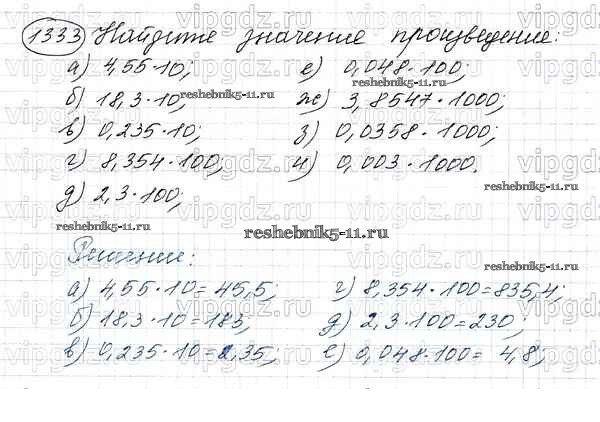 1333 Найдите значение произведение:
а) 4,55·10; е) 0,048·100;
б) 18,3·10; ж) 3,8547·1000;
в) 0,235·10; з) 0,0358·1000;
г) 8,354·100; и) 0,003·1000.
д) 2,3·100;
Решение:
а) 4,55·10=45,5; г) 8,354·100=835,4;
б) 18,3·10=183; д) 2,3·100=230;
в) 0,235·10=2,35; е) 0,048·100= 4,8;
reshebnik5-11.ru
reshebnik5-11.ru
reshebnik5-11.ru
reshebnik5-11.ru
reshebnik5-11.ru
reshebnik5-11.ru
vipgdz.ru